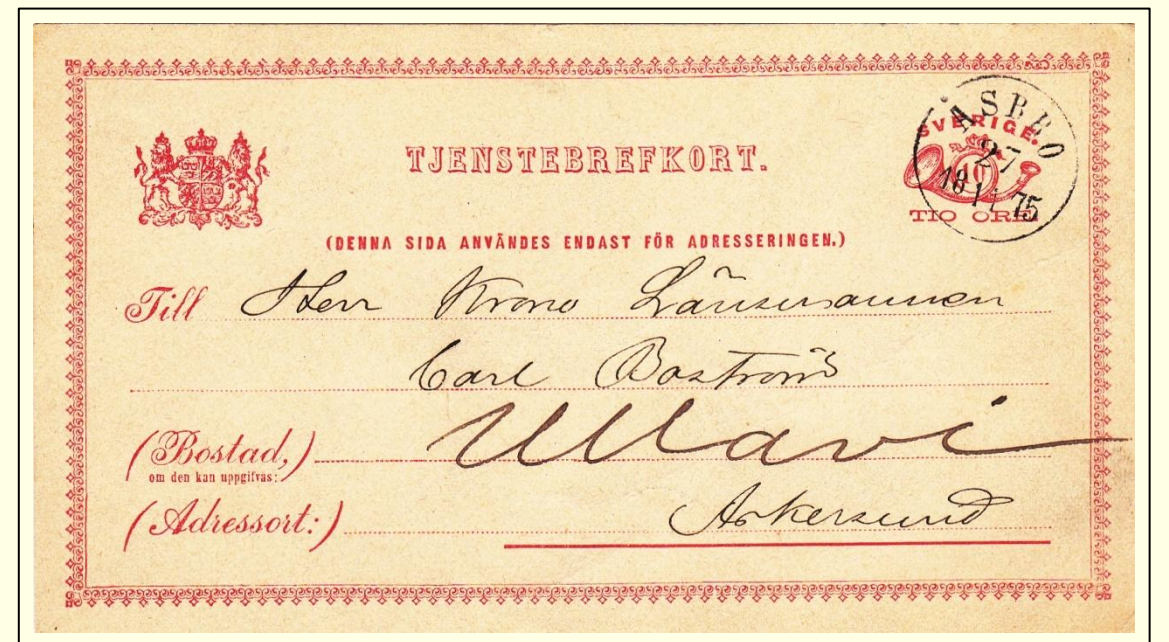 TJENSTEBREFKORT.
ASBRO
27
18 11 75
SVERIGE.
10
TIO ÖRE
(DENNA SIDA ANVÄNDES ENDAST FÖR ADRESSERINGEN.)
Till Herr Krono Länsmannen
Carl Boström
(Bostad,) Ullavi
om den kan uppgifvas:
(Adressort:) Askersund